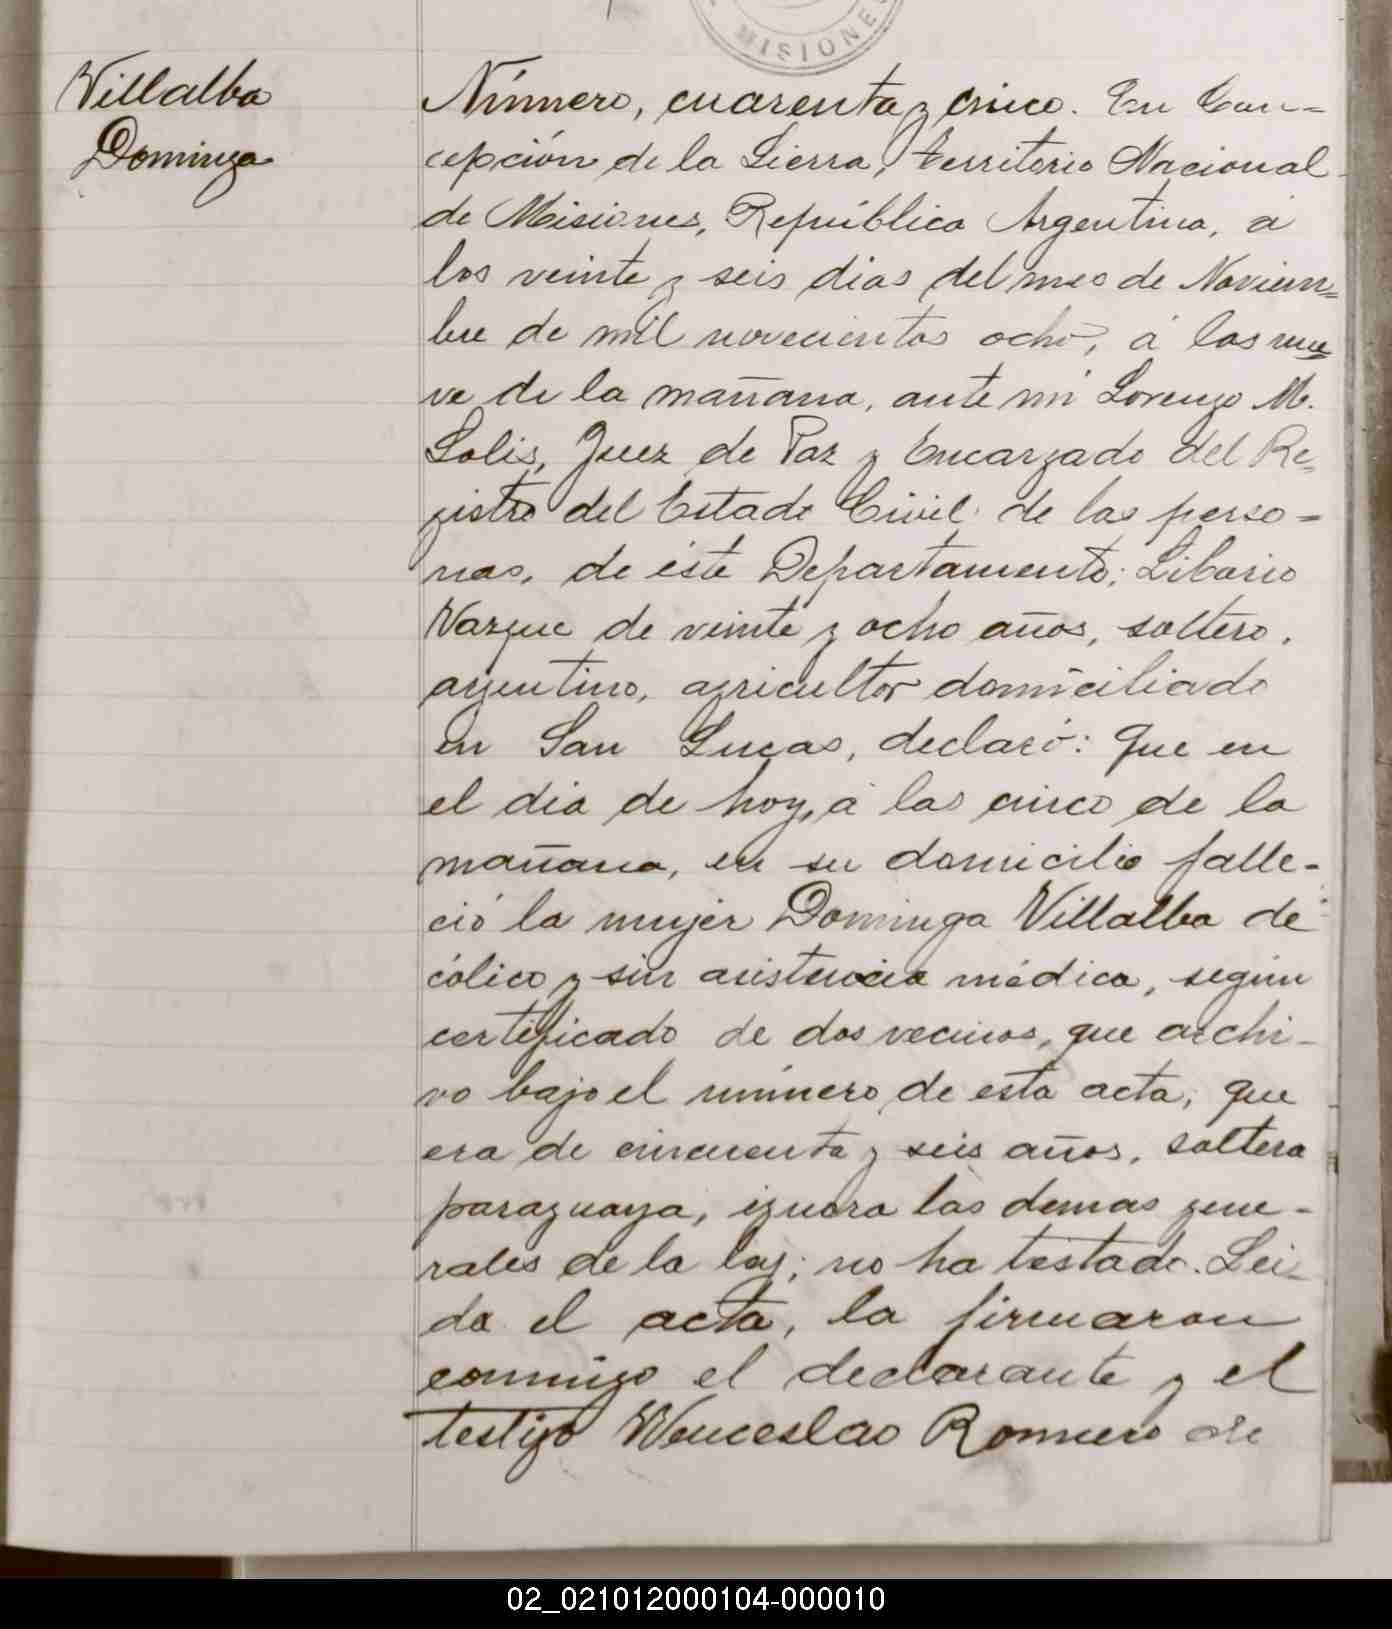 MISIONES
Villalba
Dominga
Número, cuarenta y cinco. En Con=
cepción de la Sierra, territorio Nacional
de Misiones, República Argentina, á
los veinte y seis dias del mes de Noviem=
bre de mil novecientos ocho, á las nue
ve de la mañana, ante mi Lorenzo M.
Solis, Juez de Paz y Encargado del Re=
gistro del Estado Civil de las perso=
nas, de éste Departamento; Libario
Vazque de veinte y ocho años, soltero,
argentino, agricultor domiciliado
en San Lucas, declaró: Que en
el dia de hoy, á las cinco de la
mañana, en su domicilio falle-
ció la mujer Dominga Villalba de
cólico y sin asistencia médica, según
certificado de dos vecinos, que archi-
vo bajo el número de esta acta; que
era de cincuenta y seis años, soltera
paraguaya, ignora las demas gene-
rales de la ley; no ha testado. Lei-
da el acta, la firmaron
conmigo el declarante y el
testigo Wenceslao Romero de
02_021012000104-000010